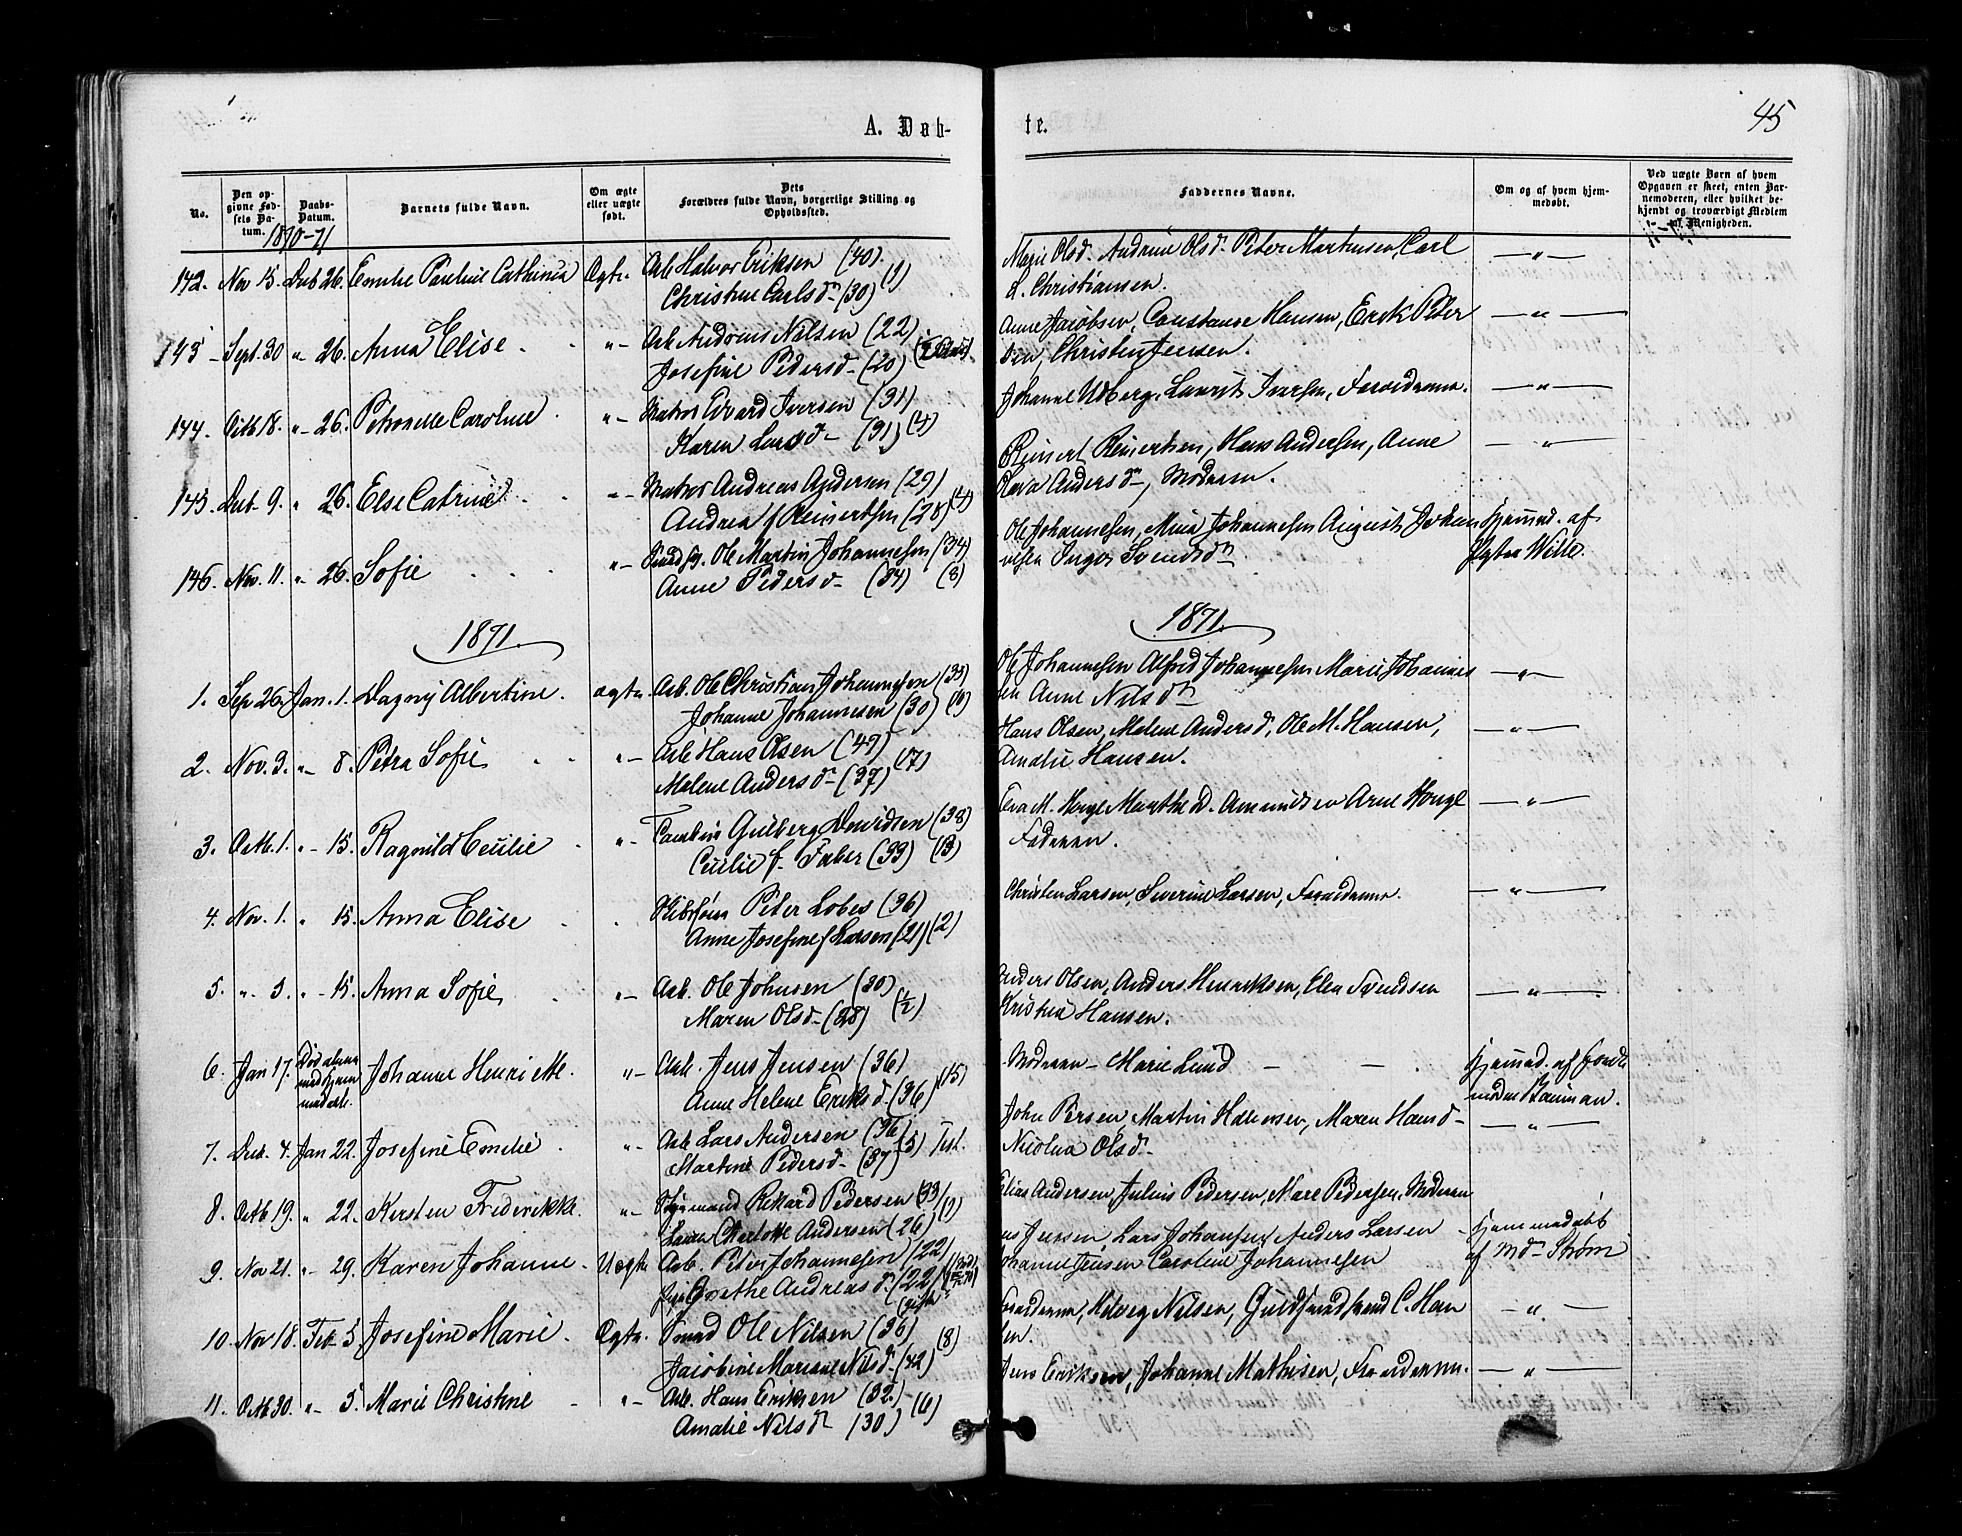 45
A. Døb-
te.
No.
Den opgivne Fødsels Datum.
Daabs-Datum.
Barnets fulde Navn.
Om ægte eller uægte født.
Dets Forældres fulde Navn, borgerlige Stilling og Opholdssted.
Faddernes Navne.
Om og af hvem hjemmedøbt.
Ved uægte Børn af hvem Opgaven er skeet, enten Barnemoderen, eller hvilket bekjendt og troværdigt Medlem af Menigheden.
1870-71
142. Nov 15. Deb 26. Emilie Pauline Cathinca Ægte. Arb Halvor Eriksen (40). Marie Olsd. Andrine Olsd. Peter Martinsen, Carl — „ —
Christine Carlsdn (30) (1) L. Christiansen.
143 - Sept. 30 „ 26. Anna Elise. „ - Arb Andreas Nilsen (22) Anne Jacobsen, Constance Hansen, Erik Peter — „ —
Josefine Pedersd - (20) sen, Christen Jensen.
144. Octb 18. „ - 26. Petronelle Caroline „ - Matros Edvard Iversen (31) Johanne Udberg, Laurits Iversen, Forældrene. — „ —
Karen Larsd - (31) (4)
145. Deb 9. „ 26. Else Catrine „ - Matros Andreas Andersen (29) Reinert Reinertsen, Hans Andersen, Anne — „ —
Andrea f Reinertsen (28) (4) Andersdn, Moderen.
146. Nov. 11. „ 26. Sofie „ - Ole Martin Johannesen (34) Ole Johannesen, Mina Johannesen August Johan Hjemmed. af
Anne Pedersd - (34) (8) nesen Inger Svendsdn Wille.
1871. 1871.
1. Sep 26. Jan. 1. Dagny Albertine. ægte. Arb. Ole Christian Johannesen (33) Ole Johannesen Alfred Johannesen Marie Johannes — „ —
Johanne Johannesen (30) sen Anne Nilsdn
2. Nov. 3. „ - 8. Petra Sofie „ - Arb Hans Olsen (49) Hans Olsen, Malene Andersd, Ole M. Hansen, — „ —
Malene Andersd - (37) (7) Amalie Hansen.
3. Octb. 1. „ - 15. Ragnild Cecilie „ - Gulberg Davidsen (38) Marthe D. Amundsen Arne — „ —
Cecilie f. Faber (33) (3) Faderen.
4. Nov. 1. „ 15. Anna Elise Peter Lobes (36) Christen Larsen, Severine Larsen, Forældrene. — „ —
Anne Josefine f Larsen (21) (2)
5. „ 3. „ - 15. Anna Sofie „ - Arb. Ole Johnsen (30) Anders Olsen, Anders Henriksen, Elen Svendsen — „ —
Maren Olsd - (28) (1/2) Kristine Hansen.
6. Jan 17. Johanne Henriette. „ - Arb. Jens Jensen (36) Moderen - Marie Lund Hjemmed. af Jorde
Anne Helene Eriksd. (36) (5) moder Bauman.
7. Deb. 4. Jan 22. Josefine Emilie „ - Arb Lars Andersen (36) (5) John Persen, Martin Halvorsen, Maren Hansd - — „ —
Martine Pedersd - (37) Nicolua Olsdn
8. Octb 19. „ 22. Kirsten Frederikke. „ - Sømand Rikard Pedersen (33) Elias Andersen, Julius Pedersen, Mare Pedersen, Moderen
Charlotte Andersen (26) (1)
9. Nov 21. „ - 29. Karen Johanne. Uægte Arb. Peter Johannesen (22) Jensen Lars Johansen Anders Larsen Hjemmedøbt
Grethe Andreasd (22) Johanne Jensen Caroline Johannesen af Mdn Strøm
10. Nov 18. Feb 5. Josefine Marie. Ægte. Smed Ole Nilsen (36) (8) Forældrene, Helvig Nilsen, C. Han — „ —
Jacobine Mariane Nilsd (42) sen.
11. Octb 30. „ - 5. Marie Christine „ - Arb. Hans Eriksen (32) Jens Eriksen, Johanne Mathisen, Forældrene. — „ —
Amalie Nilsdn (30) (6)